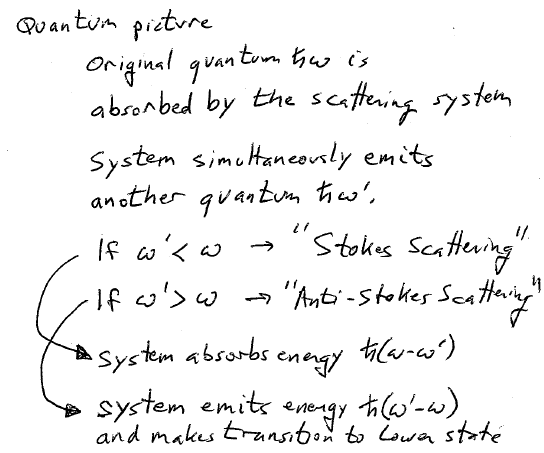 Quantum picture
Original quantum ħω is
absorbed by the scattering system
System simultaneously emits
another quantum ħω'.
If ω' < ω → "Stokes Scattering"
If ω' > ω → "Anti-Stokes Scattering"
System absorbs energy ħ(ω-ω')
System emits energy ħ(ω'-ω)
and makes transition to lower state